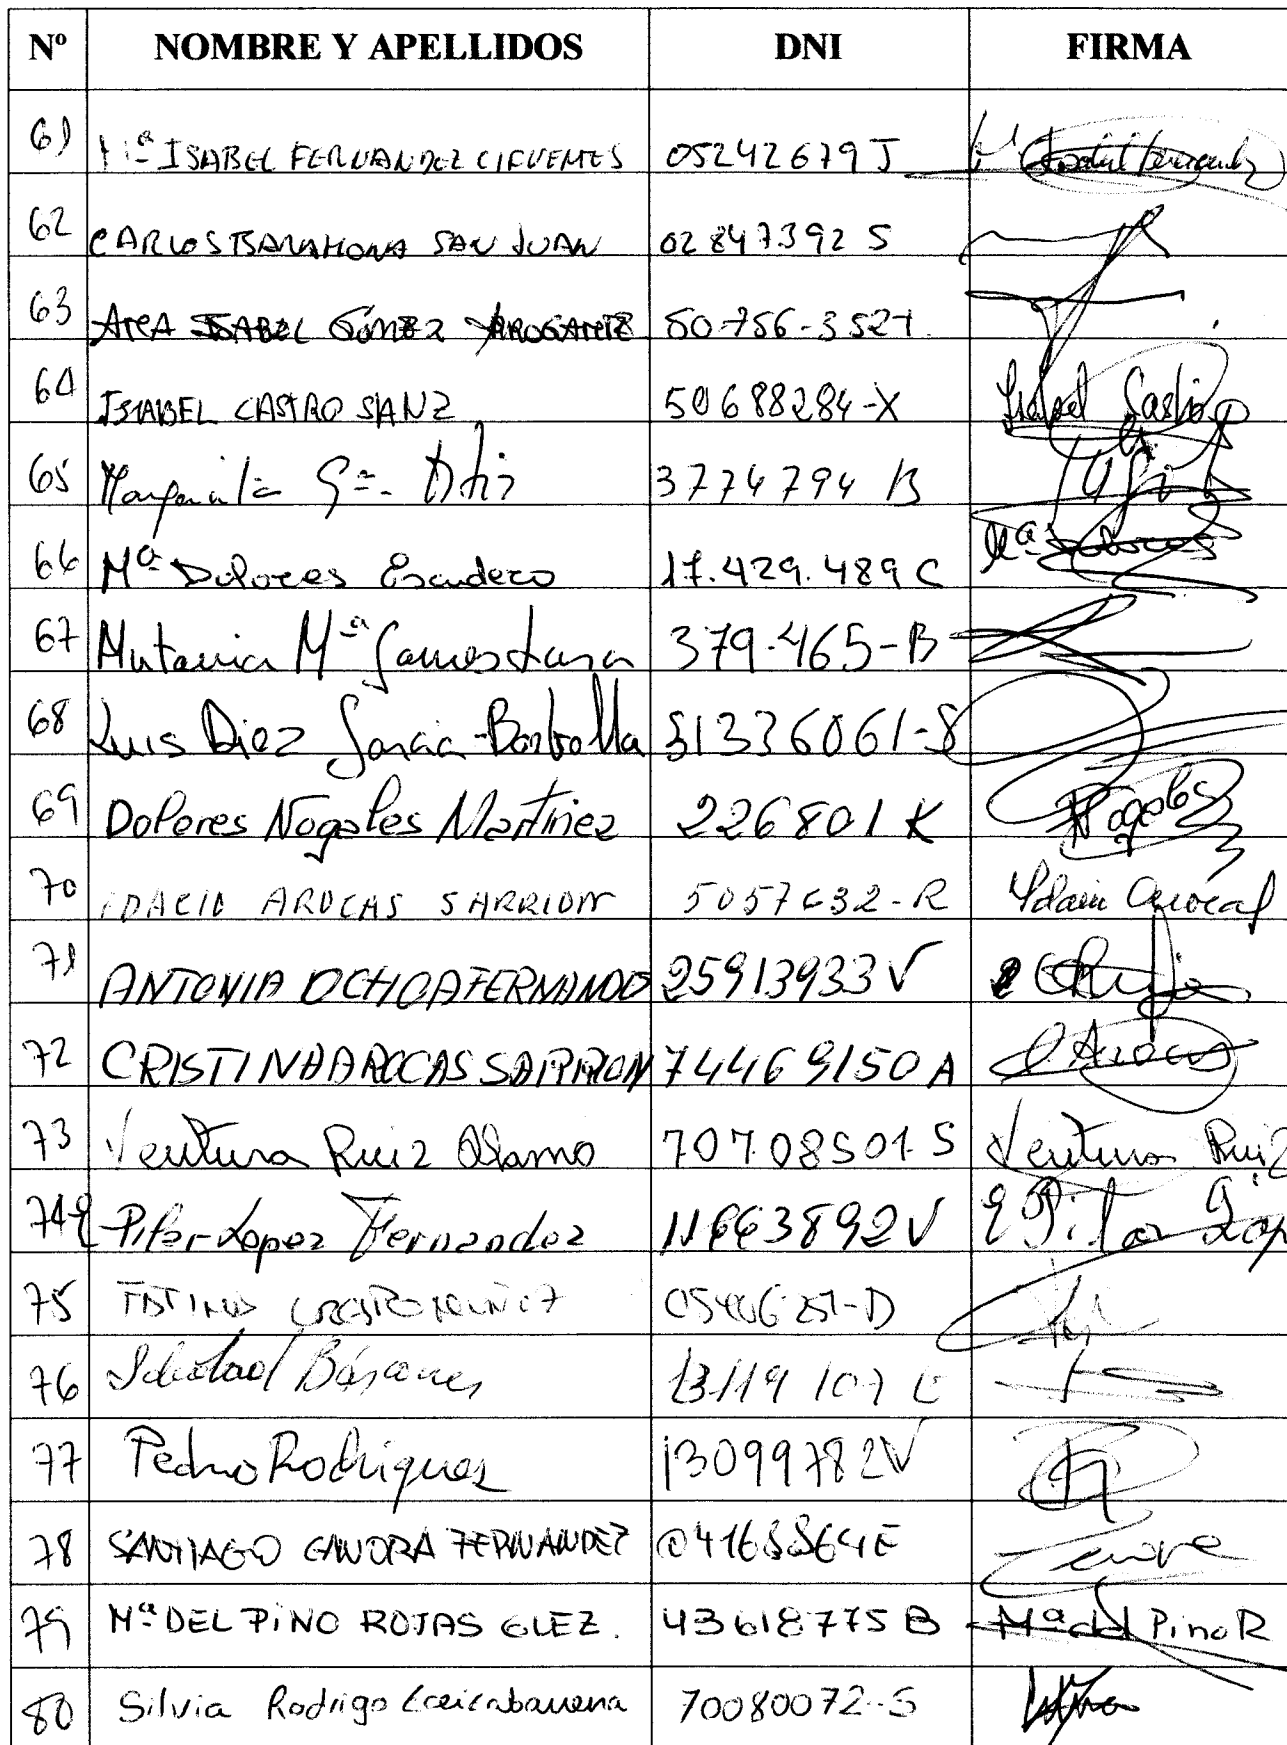 Nº NOMBRE Y APELLIDOS DNI FIRMA
61 Mª ISABEL FERNANDEZ CIFUENTES 05242679 J
62 CARLOS BARAHONA SAN JUAN 02847392 S
63 ISABEL GÓMEZ 50756-352
64 ISABEL CASTRO SANZ 50688284-X Isabel Castro
65 Margarita Gª- 3774794 B
66 Mª Dolores Escudero 17.429.489 C Mª Dolores
67 Mª 379.465-B
68 Luis Diez Garcia-Borbolla 31336061-S
69 Dolores Nogales Martinez 226801 K Nogales
70 IDACIO AROCAS SARRION 5057632-R
71 ANTONIA OCHOA FERNANDO 25913933 V
72 CRISTINA AROCAS SARRION 74469150 A Arocas
73 Ventura Ruiz Alamo 70708501-S Ventura Ruiz
74 Pilar Lopez Fernandez 11663892 V Pilar Lop
75
76 Soledad 13119107
77 Pedro Rodriguez 13099782V
78 SANTIAGO FERNANDEZ
79 Mª DEL PINO ROJAS GLEZ. 43618775 B Mª del Pino R
80 Silvia Rodrigo 70080072-S